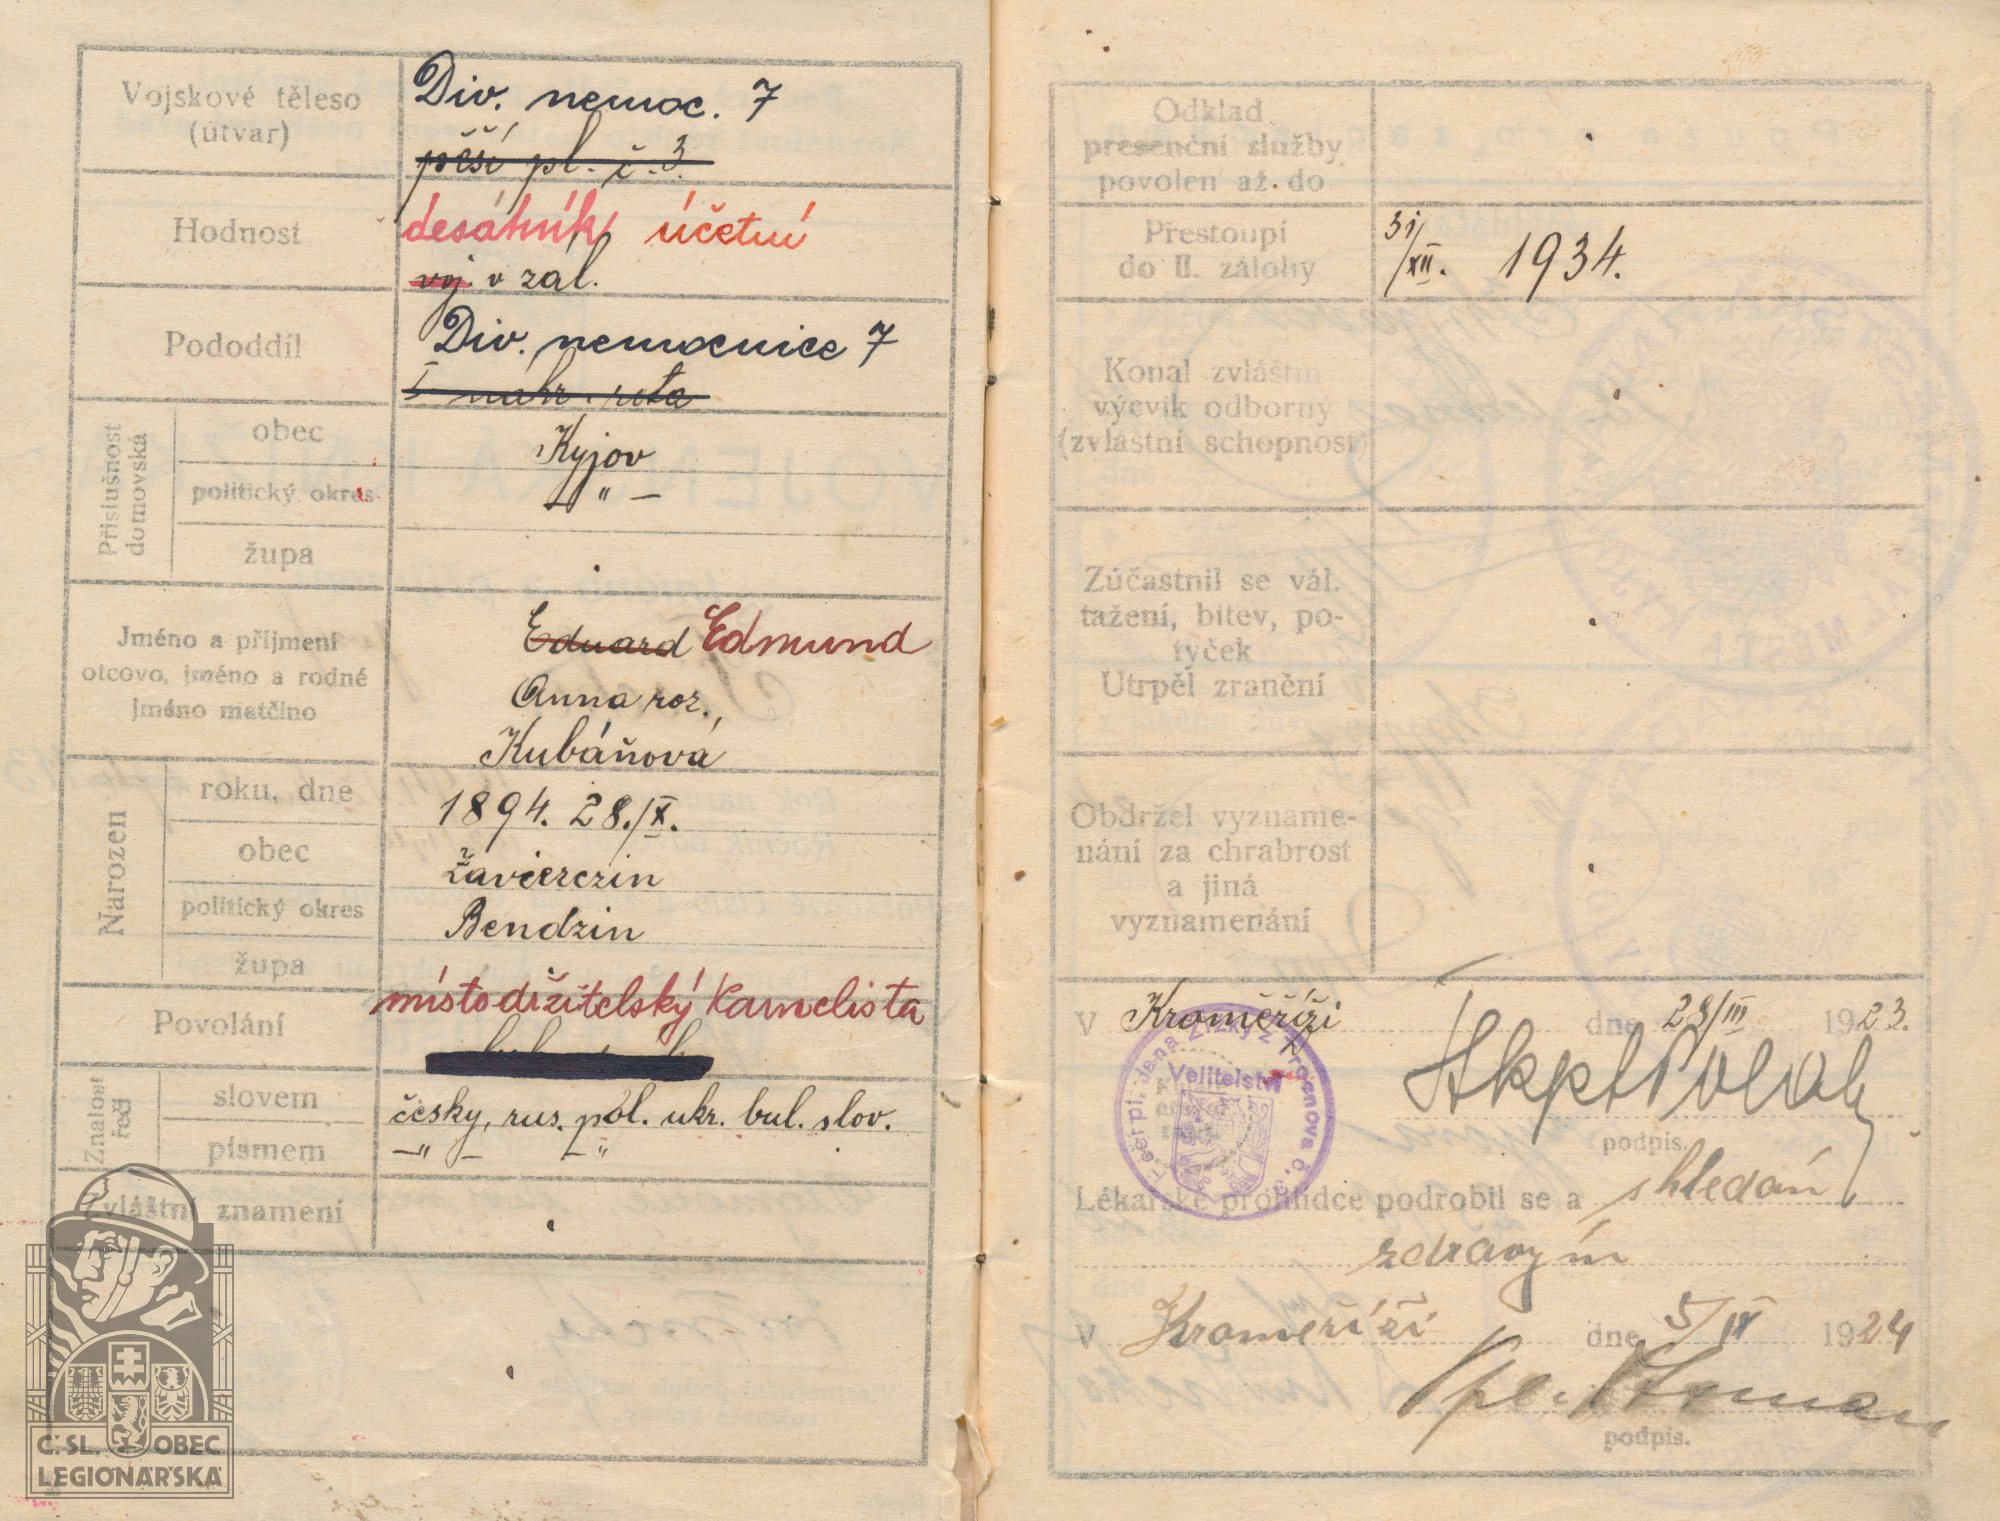 Vojskové těleso
(útvar)
Div. nemoc. 7
pěší pl. č. 3
Hodnost
desátník účetní
voj. v zál.
Pododdíl
Div. nemocnice 7
I náhr. rota
Příslušnost
domovská
obec
Kyjov
politický okres
— " —
župa
Jméno a příjmení
otcovo, jméno a rodné
jméno matčino
Eduard Edmund
Anna roz.
Kubáňová
Narozen
roku, dne
1894. 28./X.
obec
Zavierczin
politický okres
Bendzin
župa
Povolání
místodržitelský kancelista
Znalost
řečí
slovem
česky, rus. pol. ukr. bul. slov.
písmem
— " — — "
Zvláštní znamení
Č. SL. OBEC
LEGIONÁŘSKÁ
Odklad
presenční služby
povolen až do
Přestoupí
do II. zálohy
31/XII. 1934.
Konal zvláštní
výcvik odborný
(zvláštní schopnost)
Zúčastnil se vál.
tažení, bitev, po-
tyček
Utrpěl zranění
Obdržel vyzname-
nání za chrabrost
a jiná
vyznamenání
V Kroměříži dne 28/III 1923.
Velitelství
podpis.
Lékařské prohlídce podrobil se a shledán
zdravým
V Kroměříži dne 5/IX 1924
podpis.